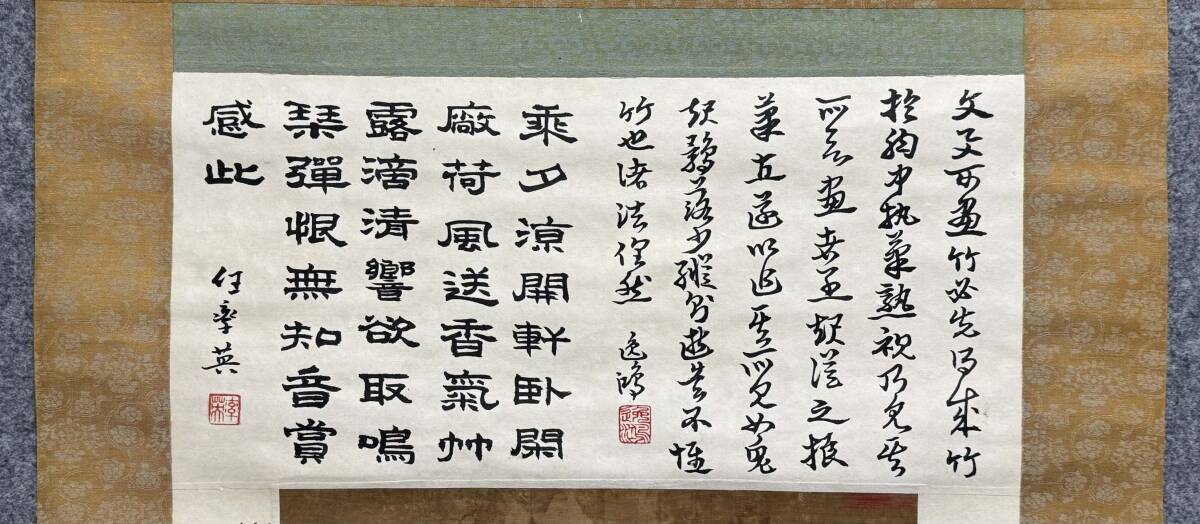 文與可畫竹必先得成竹
於胸中執筆熟視乃見其
所欲畫者急起從之振
筆直遂以追其所見如兔
起鶻落少縱則逝矣不惟
竹也诸法俱然 逸鴻
乘夕涼開軒卧閑
廠荷風送香氣竹
露滴清響欲取鳴
琹彈恨無知音賞
感此
任率英